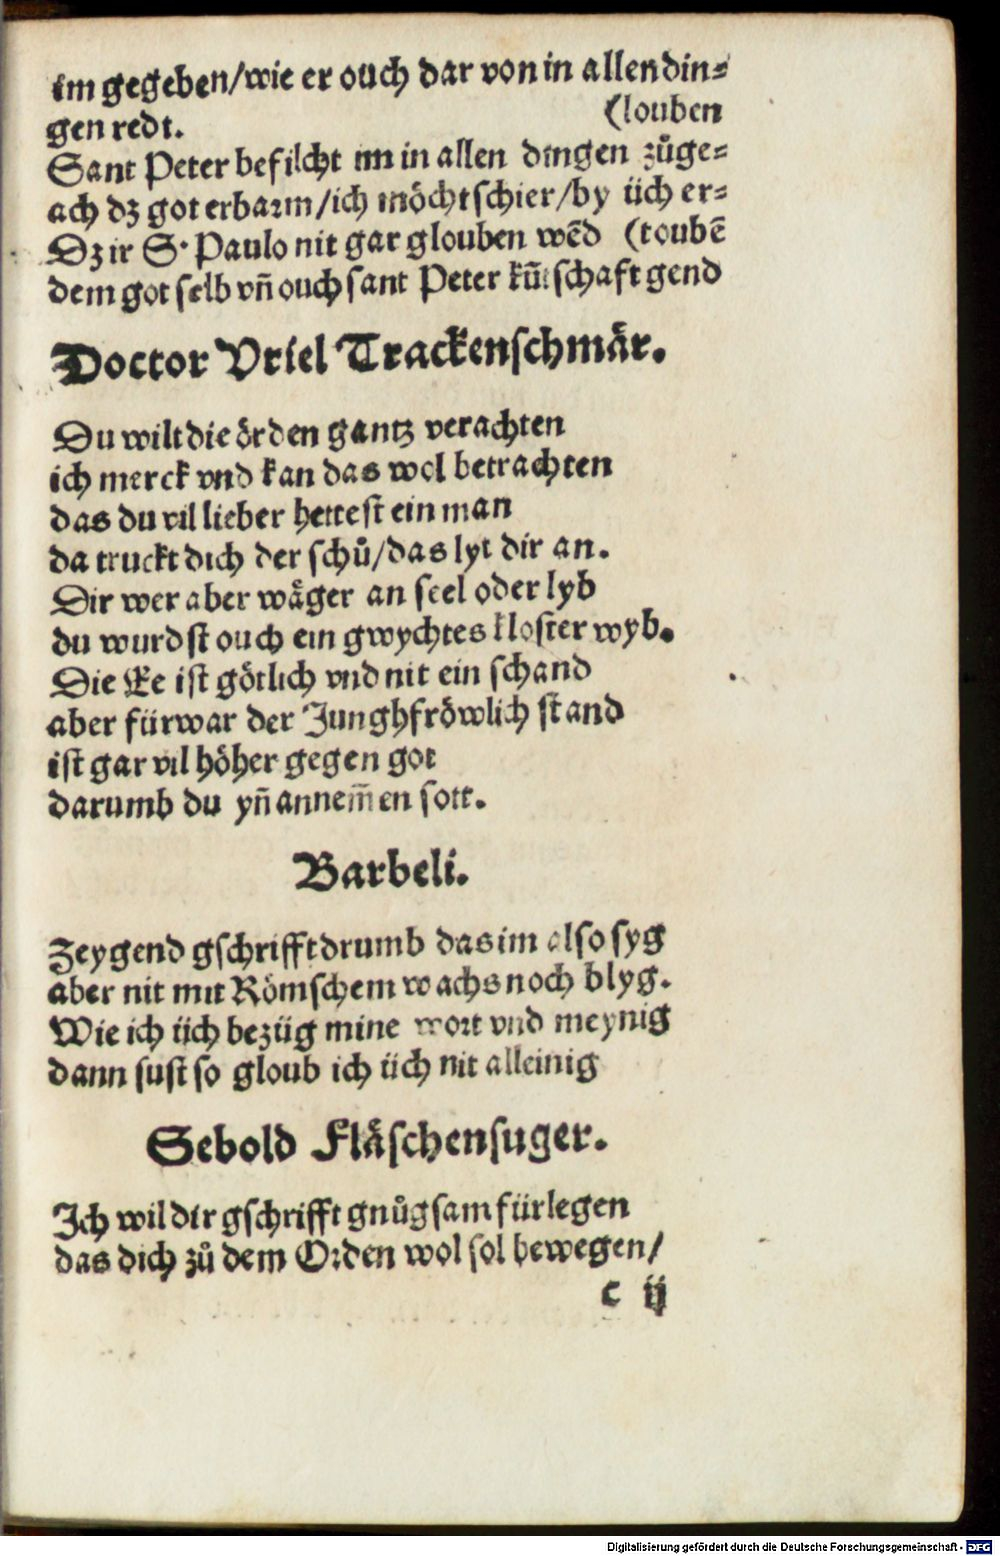 im gegeben/wie er ouch dar von in allen din⸗
gen redt. (louben
Sant Peter befilcht im in allen dingen zůge⸗
ach dz got erbarm/ich möcht schier/by üch er⸗
Dz ir S. Paulo nit gar glouben wēd (toubē
dem got selb vñ ouch sant Peter kūtschafft gend
Doctor Vriel Trackenschmär.
Du wilt die örden gantz verachten
ich merck vnd kan das wol betrachten
das du vil lieber hettest ein man
da truckt dich der schů/das lyt dir an.
Dir wer aber wäger an seel oder lyb
du wurdst ouch ein gwychtes kloster wyb.
Die Ee ist götlich vnd nit ein schand
aber fürwar der Junghfröwlich stand
ist gar vil höher gegen got
darumb du yñ annem̄en sott.
Barbeli.
Zeygend gschrifft drumb das im also syg
aber nit mit Römschem wachs noch blyg.
Wie ich üch bezüg mine wort vnd meynig
dann sust so gloub ich üch nit alleinig
Sebold Fläschensuger.
Ich wil dir gschrifft gnůgsam fürlegen
das dich zů dem Orden wol sol bewegen/
c ij
Digitalisierung gefördert durch die Deutsche Forschungsgemeinschaft - DFG